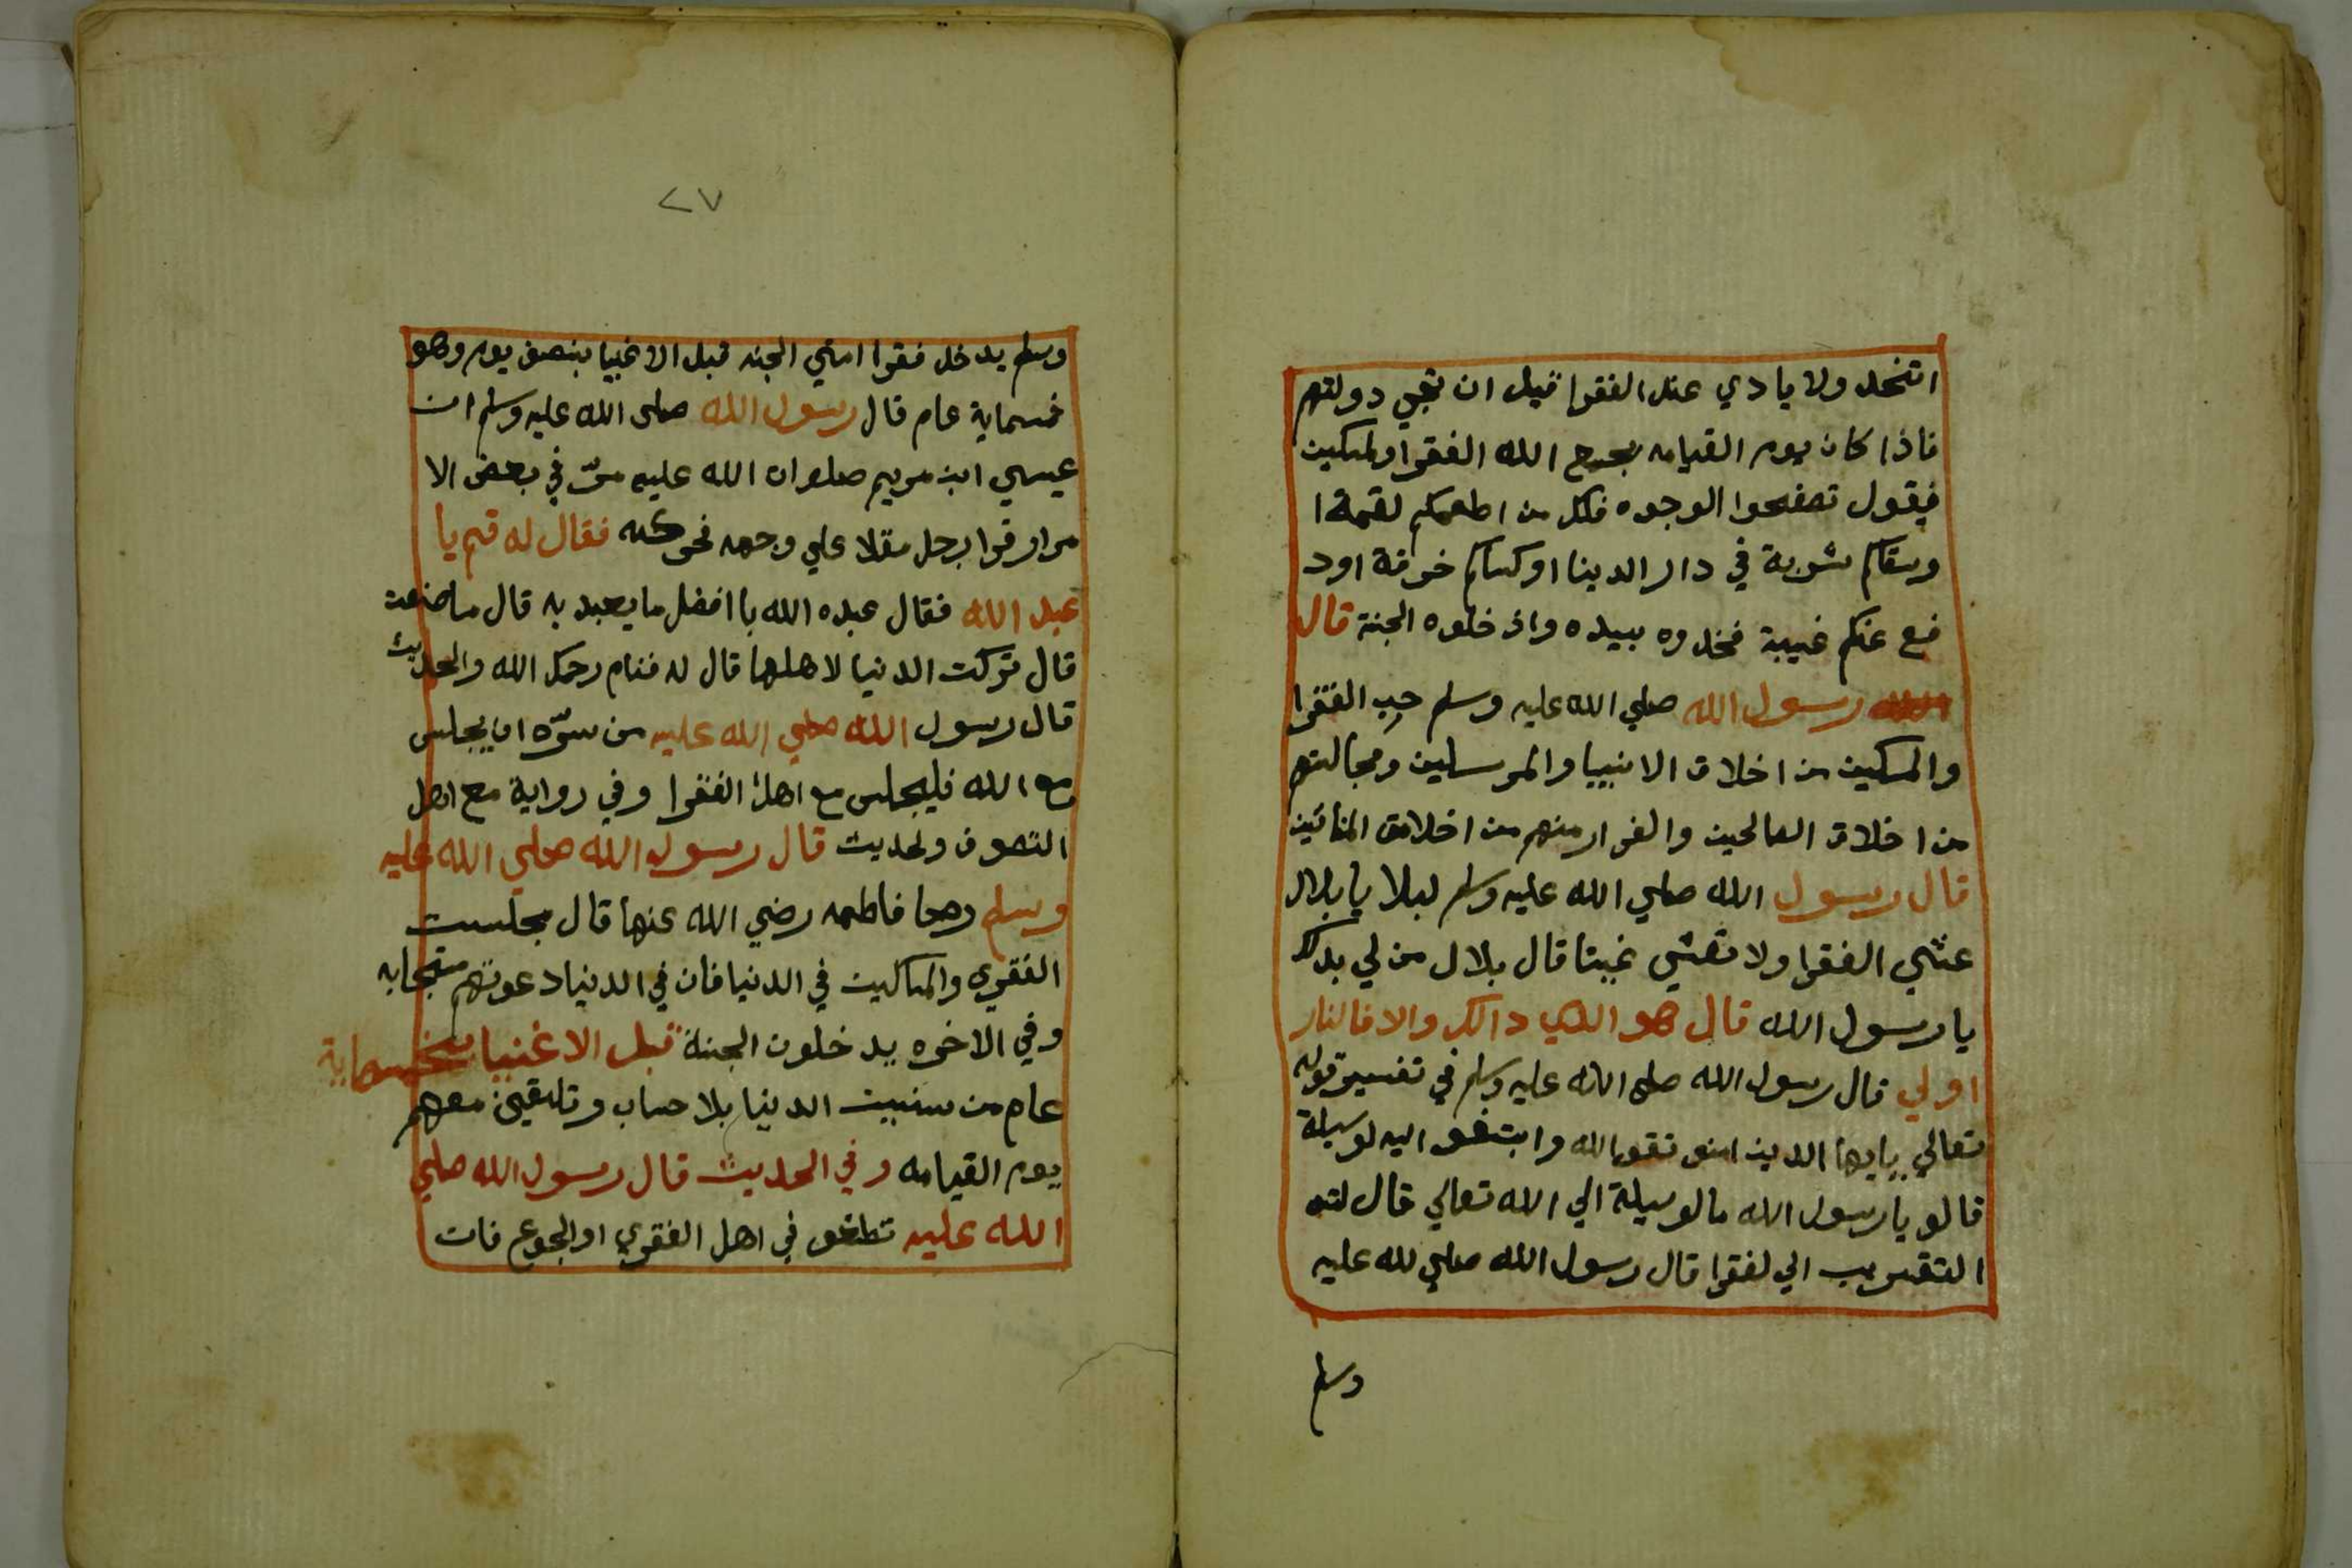 اتخد ولا يادي عند الفقرا قبل ان تجي دولتهم
فاذا كان يوم القيامه يجمع الله الفقرا ولمسكين
فيقول تصفحوا الوجوه فكل من اطعمكم لقمة ا
وسقاكم شوبة في دار الدينا او كساكم خرقة اود
فع عنكم غيبة فخدوه بييده واذ خلوه الجنة قال
رسول الله صلي الله عليه وسلم حب الفقرا
والمسكين من اخلاق الانبيا والمرسلين ومجالستهم
من اخلاق الصالحين والفرار منهم من اخلاق المنافين
قال رسول الله صلي الله عليه وسلم لبلا يا بلال
عشي الفقرا ولا تعشي غبينا قال بلال من لي بدلك
يا رسول الله قال هو الدي دالك والا فالنار
اولي قال رسول الله صلي الله عليه وسلم في تفسير قوله
تعالي يايها الدين امنو تقو الله وابتغو اليه لوسيلة
قالو يا رسول الله مالوسيلة الي الله تعالي قال لته
التقريب الي لفقرا قال رسول الله صلي لله عليه
وسلم
٢٧
وسلم يدخل فقرا امتي الجنه قبل الاغبيا بنصف يوم وهو
خمسماية عام قال رسول الله صلى الله عليه وسلم ان
عيسي ابن مريم صلوان الله عليه مرّ في بعض الا
مرار فوا برجل مقلا علي وجهه فحركه فقال له قم يا
عبد الله فقال عبده الله با افضل ما يعبد به قال ما صنعت
قال تركت الدنيا لاهلها قال له فنام رحمك الله والحديث
قال رسول الله صلي الله عليه من سرّه ان يجلس
مع الله فليجلس مع اهل الفقرا وفي رواية مع اهل
التصوف ولحديث قال رسول الله صلي الله عليه
وسلم فاطمه رضي الله عنها قال بجلست
الفقري والمساكين في الدنيا فان في الدنيا دعوتهم متجابه
وفي الاخره يدخلون الجنة قبل الاغنيا بخمسماية
عام من سنييت الدنيا بلا حساب وتلتقين معهم
يوم القيامه وفي الحديث قال رسول الله صلي
الله عليه في اهل الفقري او الجوع فان